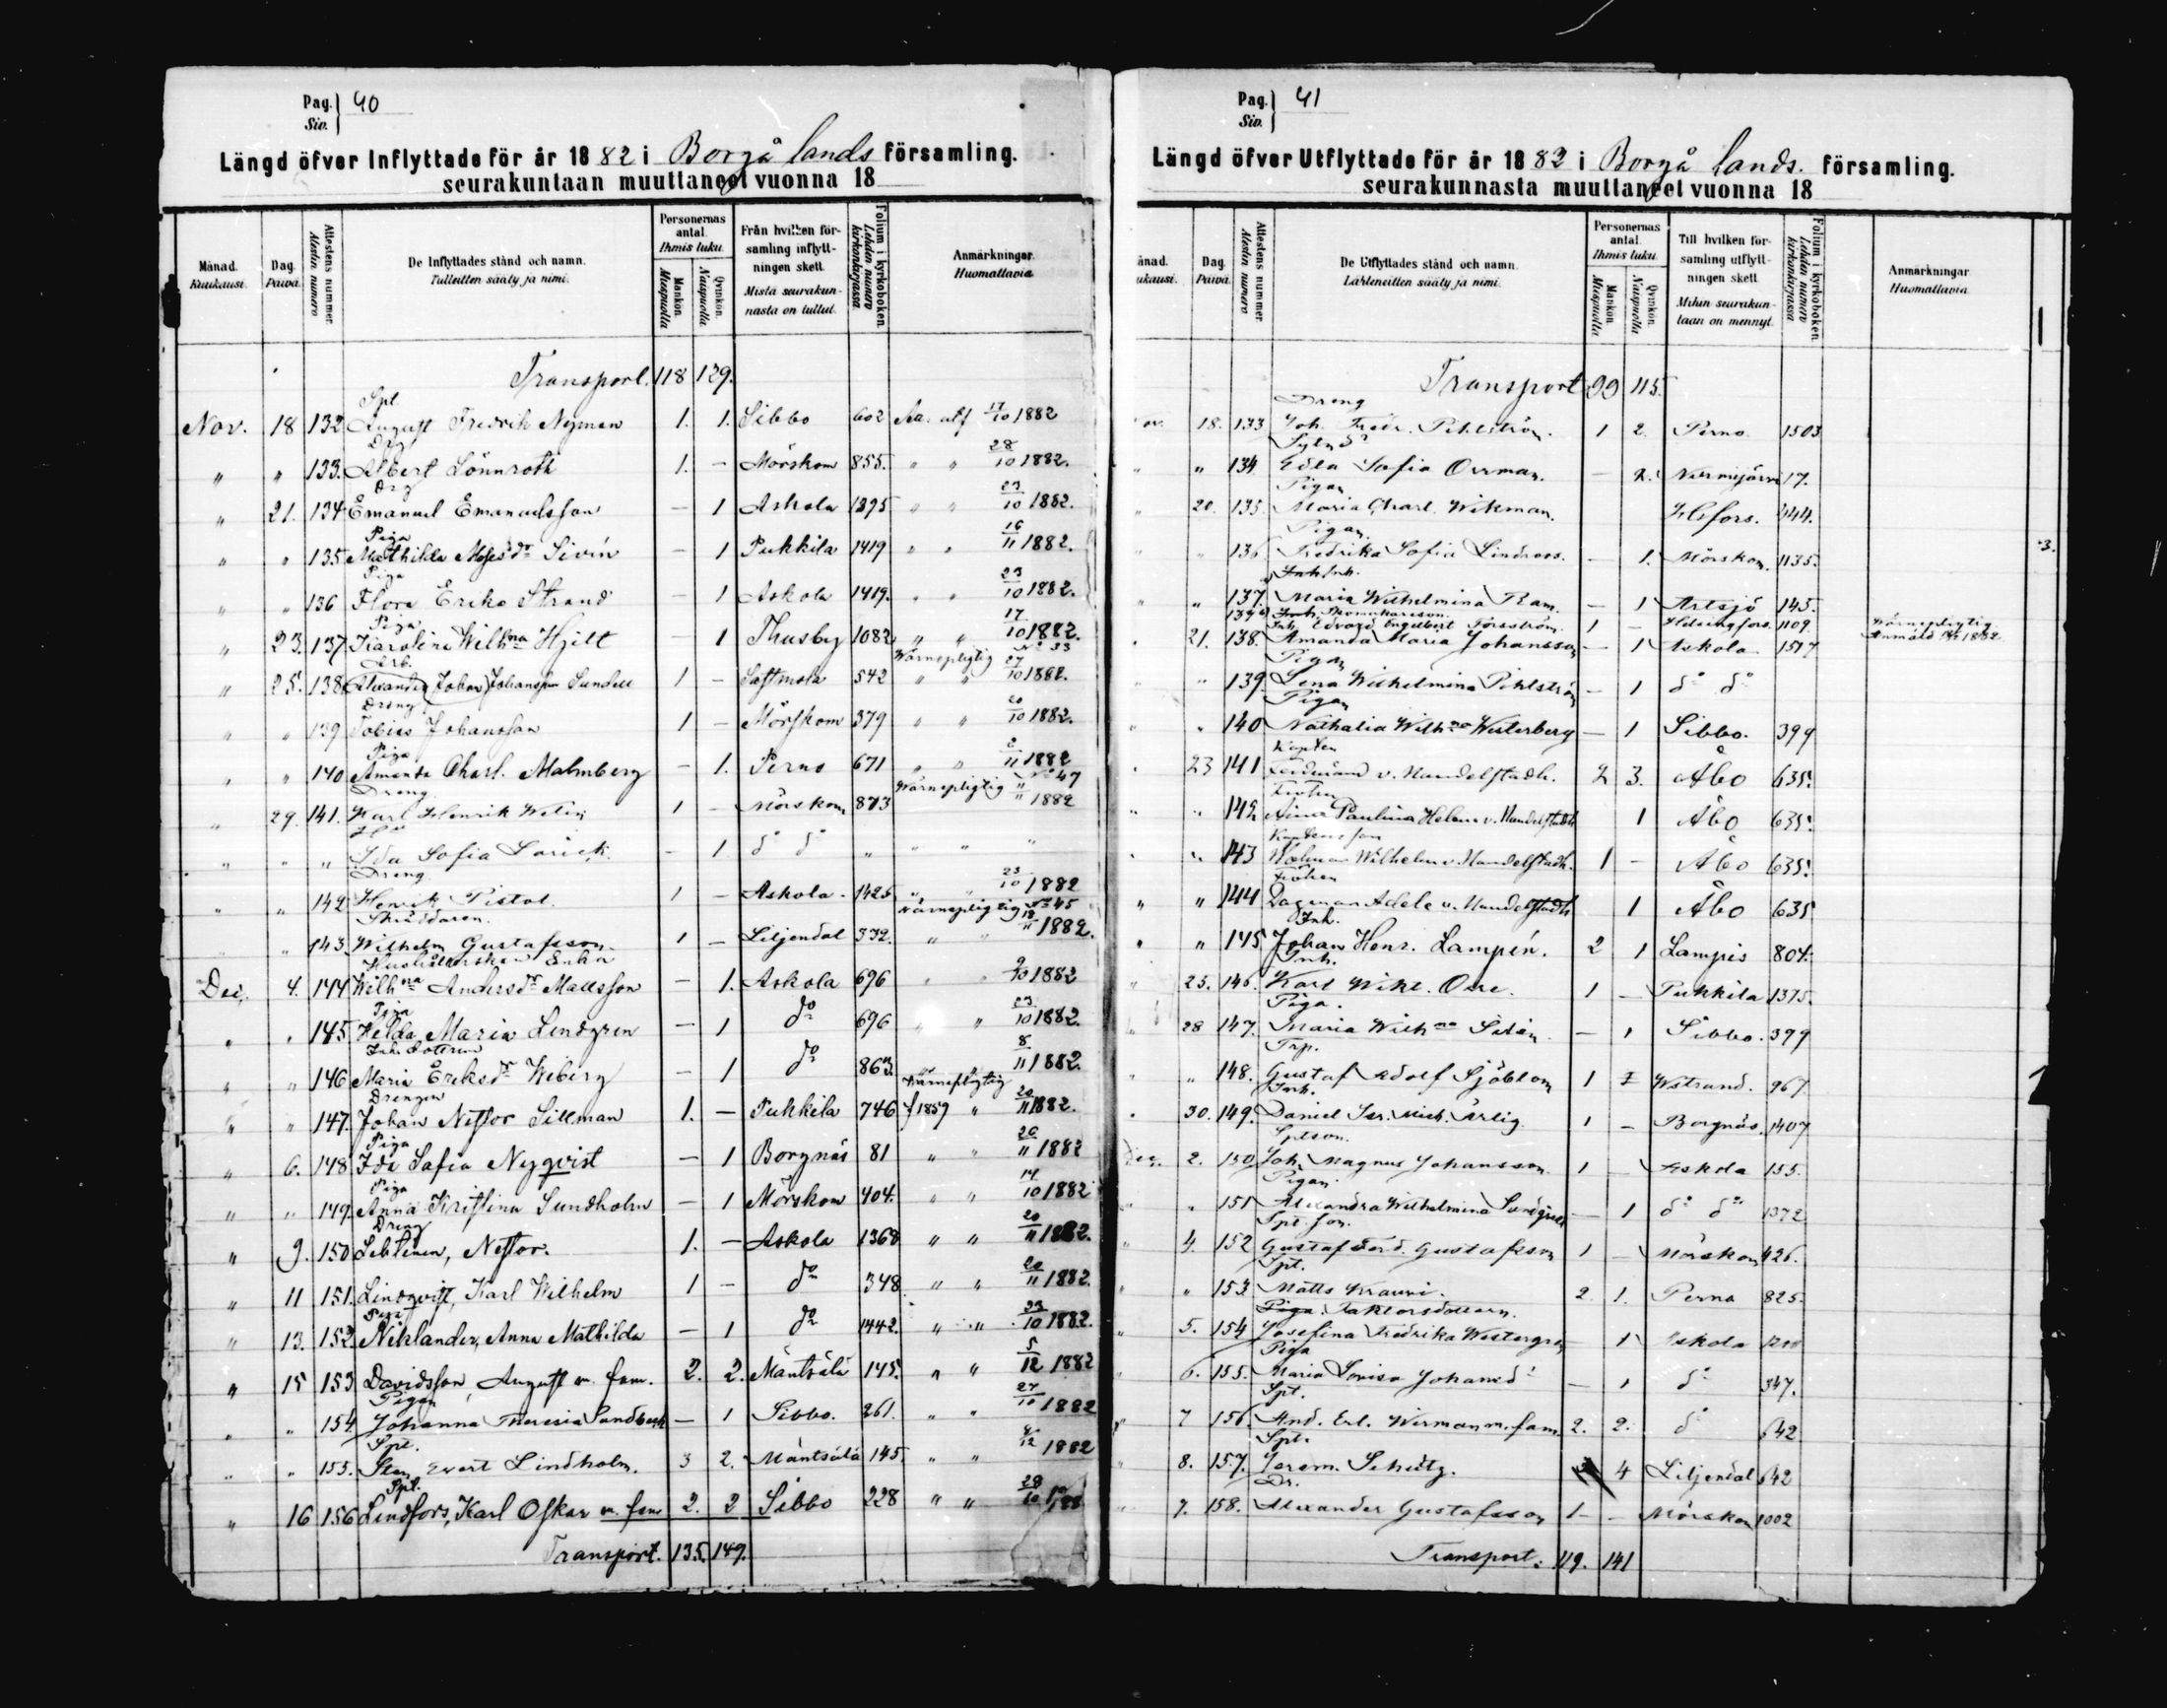 Pag. Siv. 40
Längd öfver Inflyttade för år 1882 i Borgå lands församling.
seurakuntaan muuttaneet vuonna 18
Månad. Kuukausi. | Dag. Päivä. | Attestens nummer. Alestin numero | De Inflyttades stånd och namn. Tulleitten sääty ja nimi. | Personernas antal. Ihmis luku. Mankön. Miespuolia Qvinkön. Naispuolia | Från hvilken församling inflyttningen skett. Mistä seurakunnasta on tullut. | Folium i kyrkoboken. Lehden numero kirkonkirjassa | Anmärkningar. Huomattavia
Transport. 118 129.
Spl.
Nov. 18 132 August Fredrik Nyman 1. 1. Sibbo 602 Aa. att 17/10 1882
Drg
" " 133. Albert Lönnroth 1. - Mörskom 855. " " 28/10 1882.
Drg
" 21. 134 Emanuel Emanuelsson - 1 Askola 1295 " " 23/10 1882.
Piga
" " 135 Mathilda Mosesdr Sivén - 1 Pukkila 1419 " " 16/11 1882.
Piga
" " 136 Flora Eriks Strand - 1 Askola 1419. " " 23/10 1882.
Piga
" 23. 137 Karolina Wilhna Hjelt - 1 Thusby 1082 " " 17/10 1882.
Arb. Wärnepligtig No 33
" 25. 138 Alexander Johan Johansson Sundell 1 - Sastmola 542 " " 27/10 1882.
Dreng
" " 139 Tobias Johansson 1 - Mörskom 379 " " 20/10 1882.
Piga
" " 140 Amanda Charl. Malmberg - 1. Perno 671 " " 2/11 1882
Dreng Wärnepligtig No 47
" 29. 141. Karl Henrik Welin 1 - Mörskom 873 " 1882
" " " Ida Sofia - 1 do do " " " "
Dreng.
" " 142 Henrik Pistol 1 - Askola 1425 " " 23/10 1882
Skräddaren. Wärnepligtig No 45
" " 143. Wilhelm Gustafsson 1 - Liljendal 332. " " 18/11 1882.
Hushållerskan Enka
Dec. 4. 144 Wilhna Andersdr Mattsson - 1. Askola 696 " 9/10 1882
Piga
" " 145 Helda Maria Lindgren - 1 do 696 " " 23/10 1882.
Inh. dottren
" " 146 Maria Eriksdr Wiberg - 1 do 863. " " 8/11 1882.
Drengen Wärnepligtig
" " 147. Johan Nestor Sillman 1. - Pukkila 746 f 1859 " 20/11 1882.
Piga
" 6. 148 Ida Sofia Nyqvist - 1 Borgnäs 81 " " 20/11 1882
Piga
" " 149. Anna Kristina Sundholm - 1 Mörskom 404. " " 14/10 1882
Dreng
" 9. 150 Lehtinen, Nestor. 1. - Askola 1368 " " 20/11 1882.
" 11 151. Lindqvist, Karl Wilhelm 1 - do 348 " " 20/11 1882.
Piga
" 13. 152. Niklander, Anna Mathilda - 1 do 1442. " " 23/10 1882.
" 15 153 Davidsson, August m. fam. 2. 2. Mäntsälä 145. " " 5/12 1882
Pigan
" " 154. Johanna Theresia Sundbeck - 1 Sibbo. 261. " " 27/10 1882
Spl.
" " 155. Sten Evert Lindholm. 3 2. Mäntsälä 145 " " 4/12 1882
Spl.
" 16 156 Lindfors, Karl Oskar m. fam 2. 2 Sibbo 228 " " 28/10
Transport. 135. 149.
Pag. Siv. 41
Längd öfver Utflyttade för år 1882 i Borgå lands. församling.
seurakunnasta muuttaneet vuonna 18
ånad. ukausi. | Dag. Päivä. | Attestens nummer. Alestin numero | De Utflyttades stånd och namn. Lähteneitten sääty ja nimi. | Personernas antal. Ihmis luku. Mankön. Miespuolia Qvinkön. Naispuolia | Till hvilken församling utflyttningen skett. Mihin seurakuntaan on mennyt. | Folium i kyrkoboken. Lehden numero kirkonkirjassa | Anmärkningar. Huomattavia
Transport 99 115.
Dreng
ov. 18. 133 Joh. Fredr. Pihlström. 1 2. Perno 1503
" " 134. Edla Sofia Orrman. - 2. Nurmijärvi 17.
Pigan
" 20. 135. Maria Charl. Wikman. H.fors. 444.
Pigan
" " 136 Fredrika Sofia Lindroos. - 1. Mörskom. 1135. 3.
" " 137. Maria Wilhelmina Ram. - 1 Artsjö 145.
Inh. Edvard Engelbert Forsström. 1 - Helsingfors. 1109. Wärnepligtig Anmäld 1882
" 21. 138. Amanda Maria Johansson - 1 Askola 1517
Pigan
" " 139. Lena Wilhelmina Pihlström - 1 do do
Pigan
" " 140 Nathalia Wilhna Westerberg - 1 Sibbo. 399
Kapten
" 23 141 Ferdinand v. Handelstadh. 2 3. Åbo 635.
Fröken
" " 142 Aina Paulina Helena v. Handelstadh 1 Åbo 635.
Kaptens son
" " 143 Wilhelm v. Handelstadh. 1 - Åbo 635.
Fröken
" " 144 Dagmar Adele v. Handelstadh 1 Åbo 635
Inh.
" " 145 Johan Henr. Lampén. 2 1 Lampis 804.
Inh.
" 25. 146. Karl Wikt. 1 - Pukkila 1375.
Piga.
" 28 147. Maria Wilhna - 1 Sibbo. 399
Trp.
" " 148. Gustaf Adolf Sjöblom 1 1 Wstrand. 967.
Inh.
" 30. 149. Daniel Isr. Mich. Ärlig. 1 - Borgnäs. 1407
Splson.
Dec. 2. 150 Joh. Magnus Johansson 1 - Askola 155.
Pigan.
" " 151 Alexandra Wilhelmina Lindgren - 1 do do 1372
Spl. son.
" 4. 152 Gustaf Ferd. Gustafsson 1 - Mörskom 426.
Spl.
" " 153. Matts Krauvi. 2. 1. Perna 825.
Piga Faktorsdottern.
" 5. 154 Josefina Fredrika Westergren 1 Askola
Piga
" 6. 155. Maria Lovisa Johansdr - 1 do 347.
Spl.
" 7 156. And. Erl. Wirman m. fam 2. 2. do 642
Spl.
" 8. 157. Jerem. Schütz. 4 Liljendal 642
Dr.
" 9. 158. Alexander Gustafsson 1 - Mörskom 1002
Transport. 119. 141